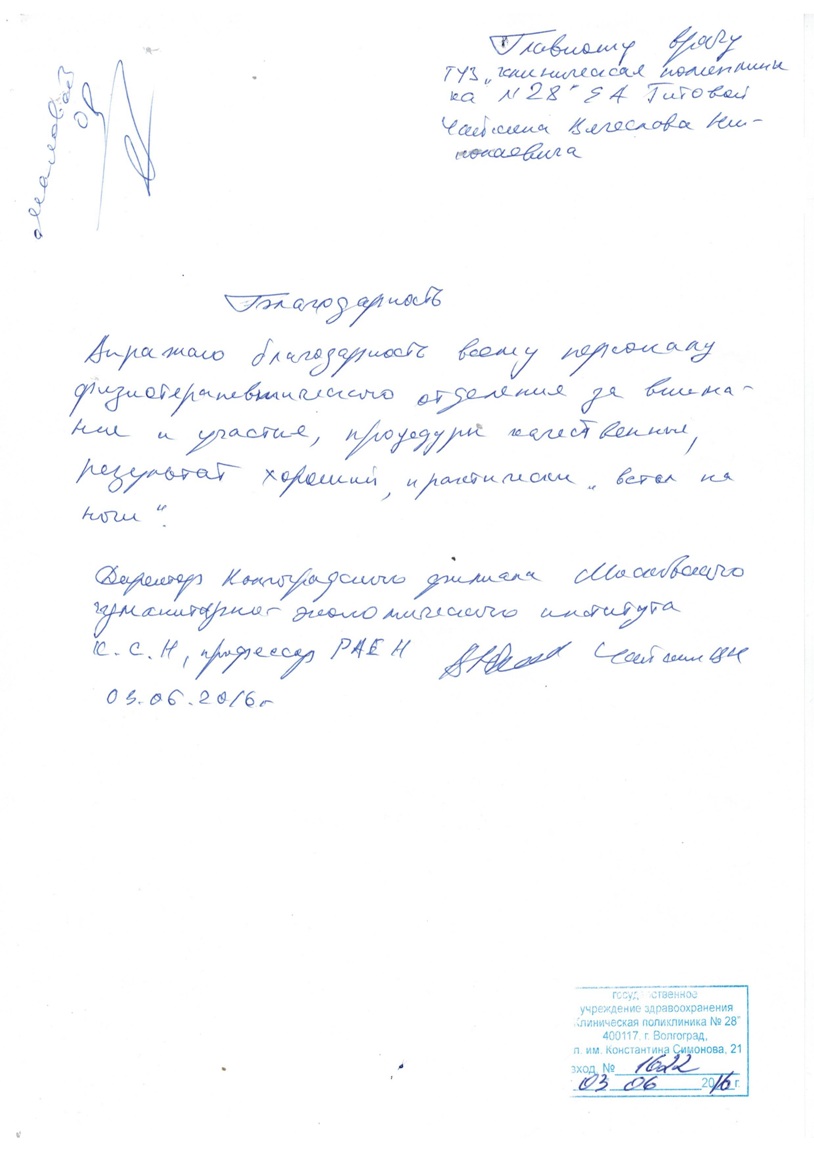 Главному врачу
ГУЗ „клиническая поликлини
ка №28" Е А Титовой
Вячеслава Ни-
колаевича
Благодарность
Выражаю благодарность всему персоналу
физиотерапевтического отделения за внима-
ние и участие, процедуры качественные,
результат хороший, практически „встал на
ноги".
Директор Волгоградского филиала Московского
гуманитарно-экономического института
К.С.Н, профессор РАЕН
03.06.2016г
госуд ственное
учреждение здравоохранения
Клиническая поликлиника № 28"
400117, г. Волгоград,
л. им. Константина Симонова, 21
вход. № 1622
03 06 2016 г.